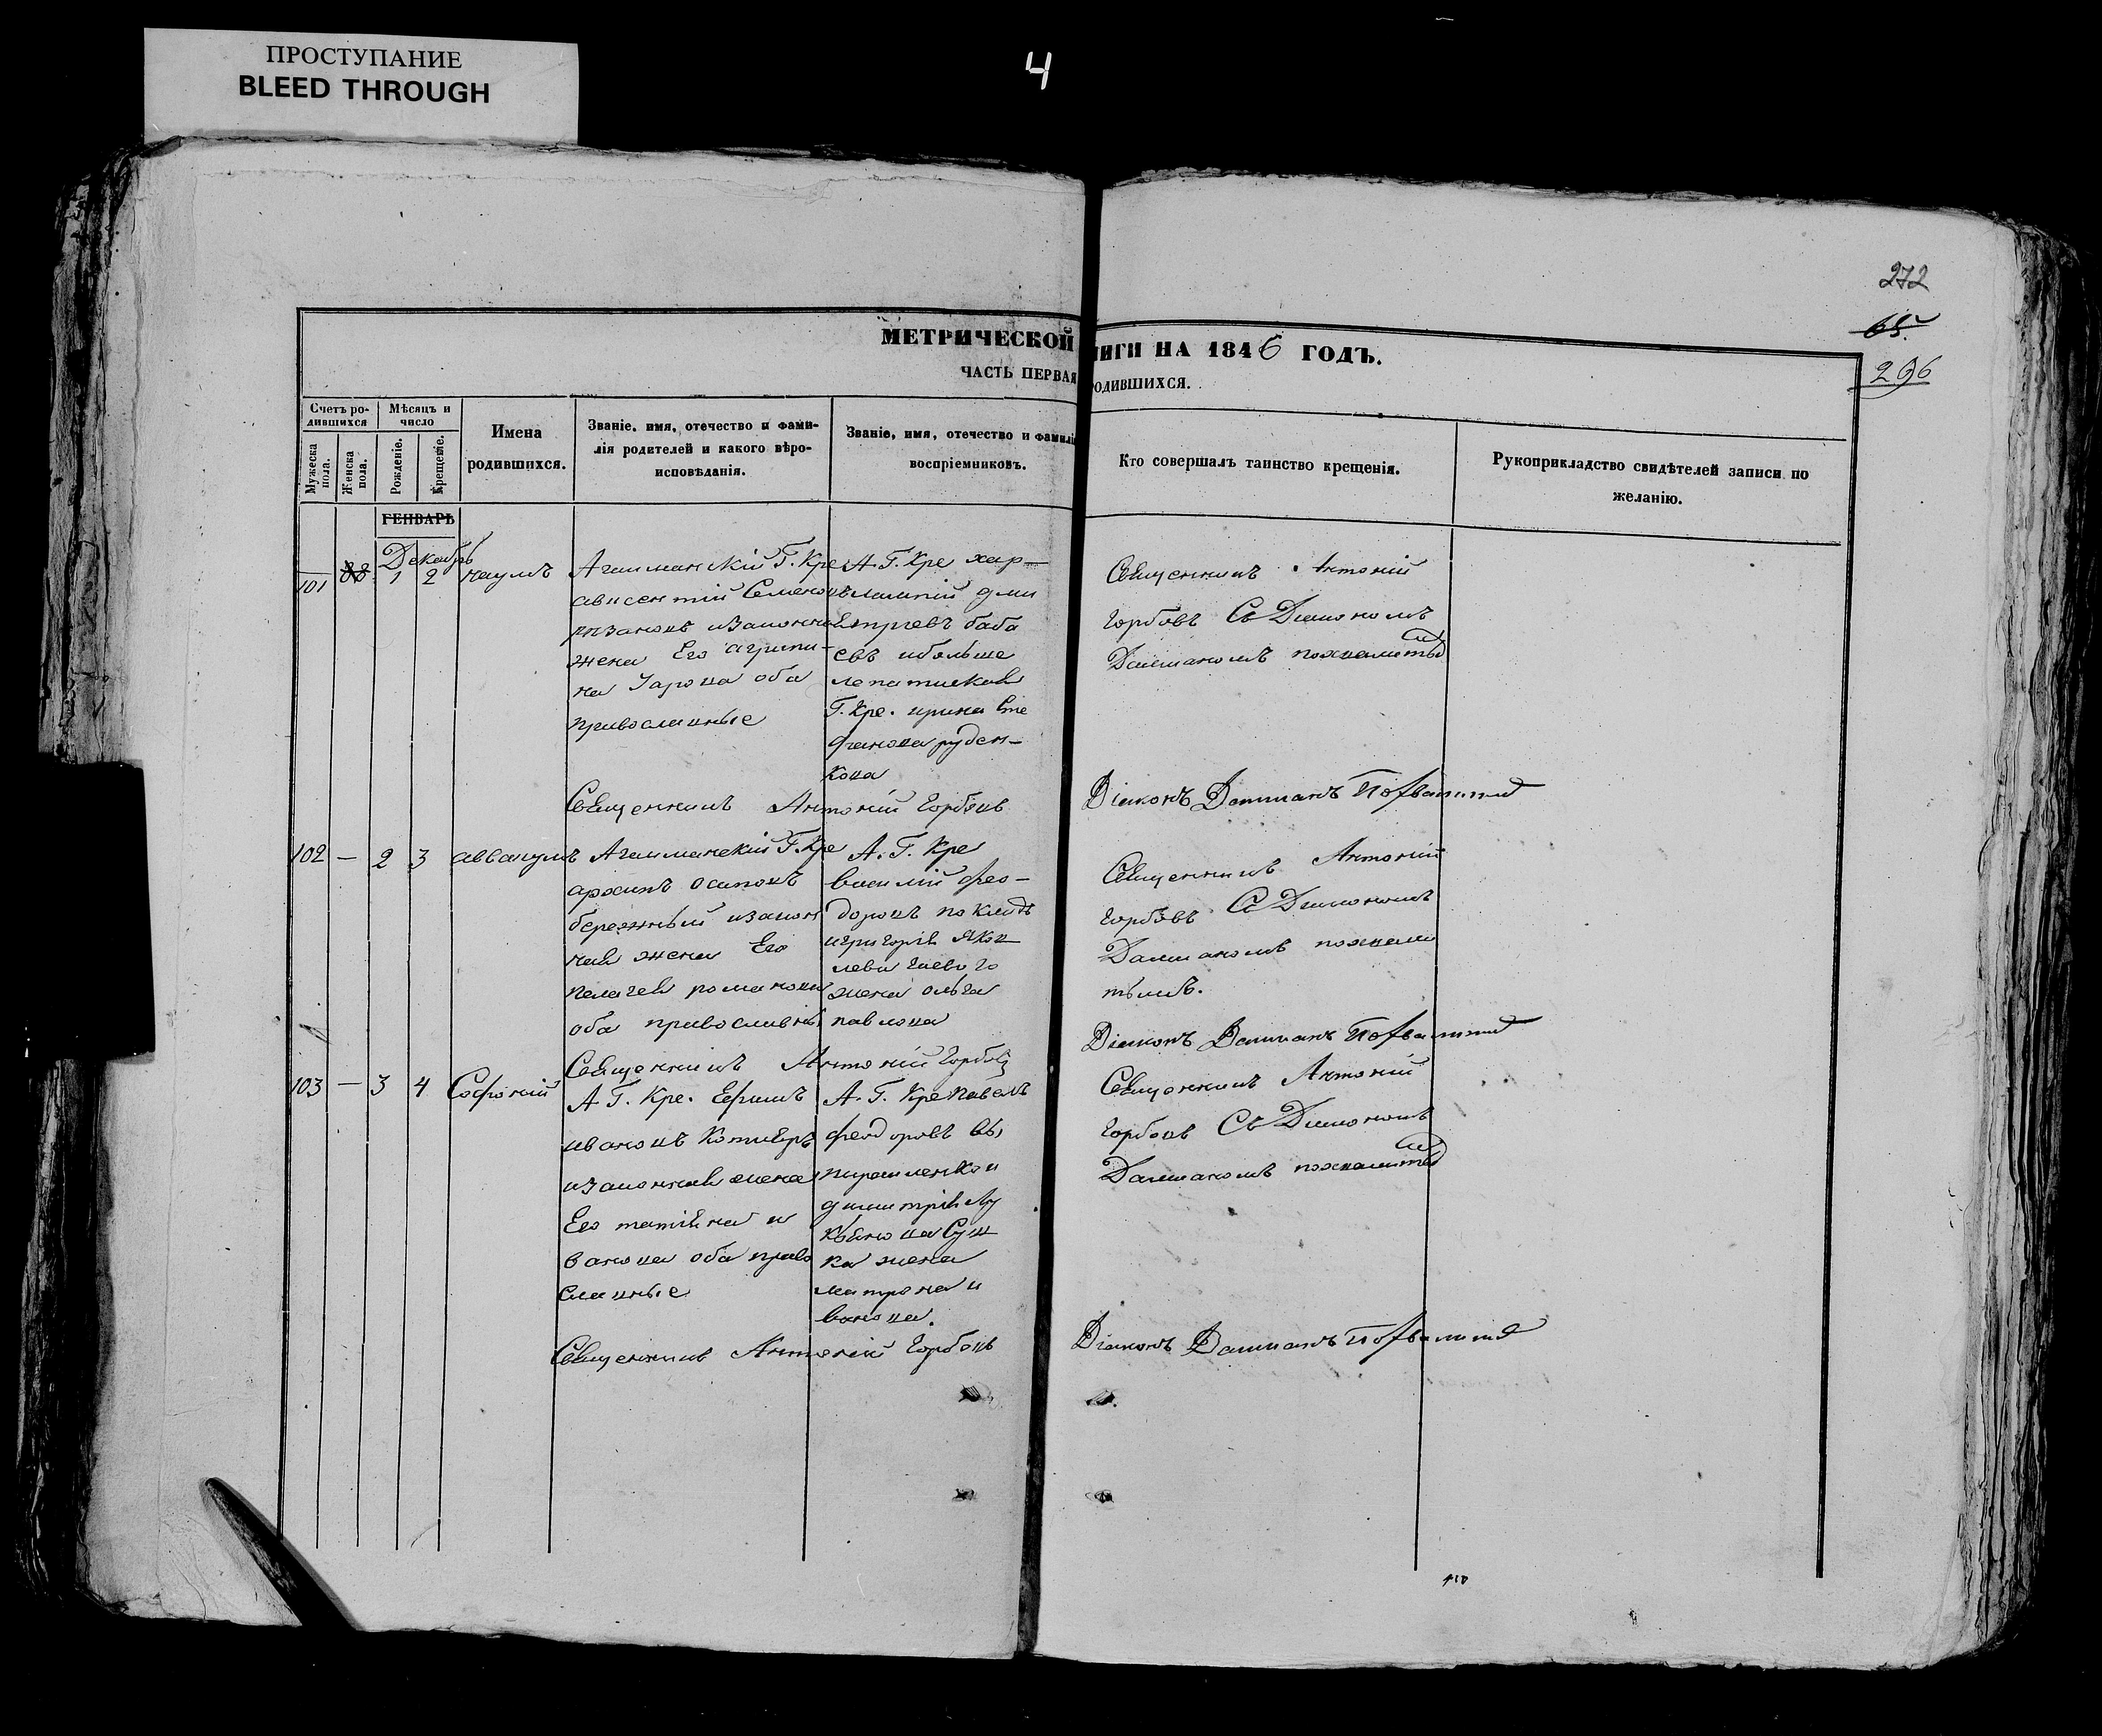 ПРОСТУПАНИЕ
BLEED THROUGH
4
272
65
296
МЕТРИЧЕСКОЙ
НИГИ НА 1846 ГОДЪ.
ЧАСТЬ ПЕРВАЯ
ОДИВШИХСЯ.
Счетъ ро-
дившихся
Мужеска пола.
Женска пола.
Мѣсяцъ и
число
Рожденіе.
Крещеніе.
Имена
родившихся.
Званіе, имя, отечество и фами-
лія родителей и какого вѣро-
исповѣданія.
Званіе, имя, отечество и фамилі
воспріемниковъ.
Кто совершалъ таинство крещенія.
Рукоприкладство свидѣтелей записи по
желанію.
ГЕНВАРЬ
Декабрь
101
88
1
2
наумъ
Агаиманскій Г. Кре
авксентій Семеновъ
жена Его агрипи-
на оба
православные
А. Г. Кре хар-
лампій дми
тріевъ баба
евъ
Г. Кре. ирина Сте
фанова руден-
кова
Священникъ Антоній
Горбовъ Съ Діакономъ
Даміаномъ
Священникъ Антоній Горбовъ
Діаконъ Даміанъ
102
—
2
3
аввакумъ
Агаиманскій Г. Кре
архипъ осиповъ
бережный изакон
ная жена Его
пелагея романова
оба православны
А. Г. Кре
василій фео-
доровъ
игригорія яков
лева
жена ольга
павлова
Священникъ Антоній
Горбовъ Съ Діакономъ
Даміаномъ
Священникъ Антоній Горбовъ
Діаконъ Даміанъ
103
—
3
4
Софоній
А. Г. Кре. Ефимъ
ивановъ
изаконная жена
Его татіяна и
ванова оба право
славные
А. Г. Кре павелъ
феодоровъ
димитрія Лу
кьянова Суш
ка жена
матрона и
ванова.
Священникъ Антоній
Горбовъ Съ Діакономъ
Даміаномъ
Священникъ Антоній Горбовъ
Діаконъ Даміанъ